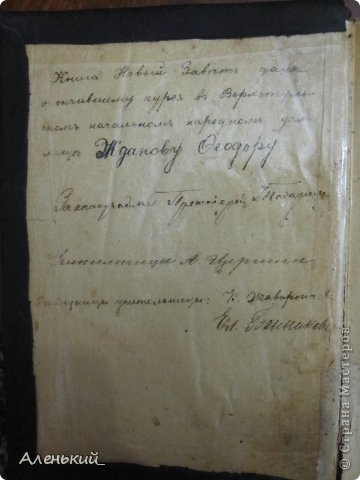 Книга Новый Завѣтъ дана
окончившему курсъ въ Верхотур
скомъ начальномъ народномъ учи
лищѣ Жданову Ѳеодору
Законоучитель Протоіерей
Учительница А.
учительницы:
Ел.
Аленький_
© Страна Мастеров